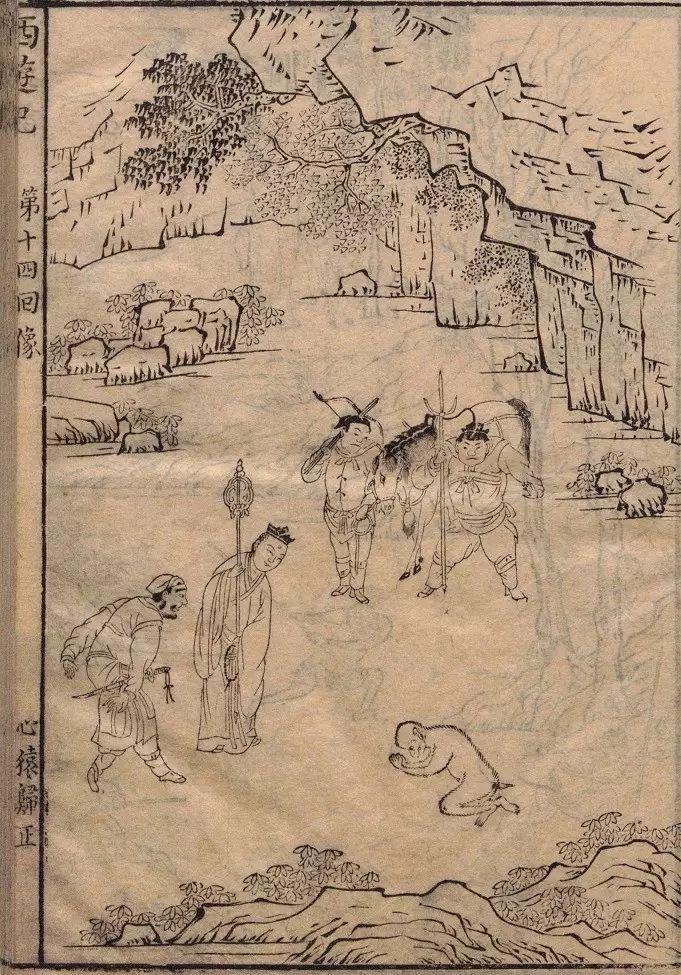 西遊記
第十四回像
心猿歸正